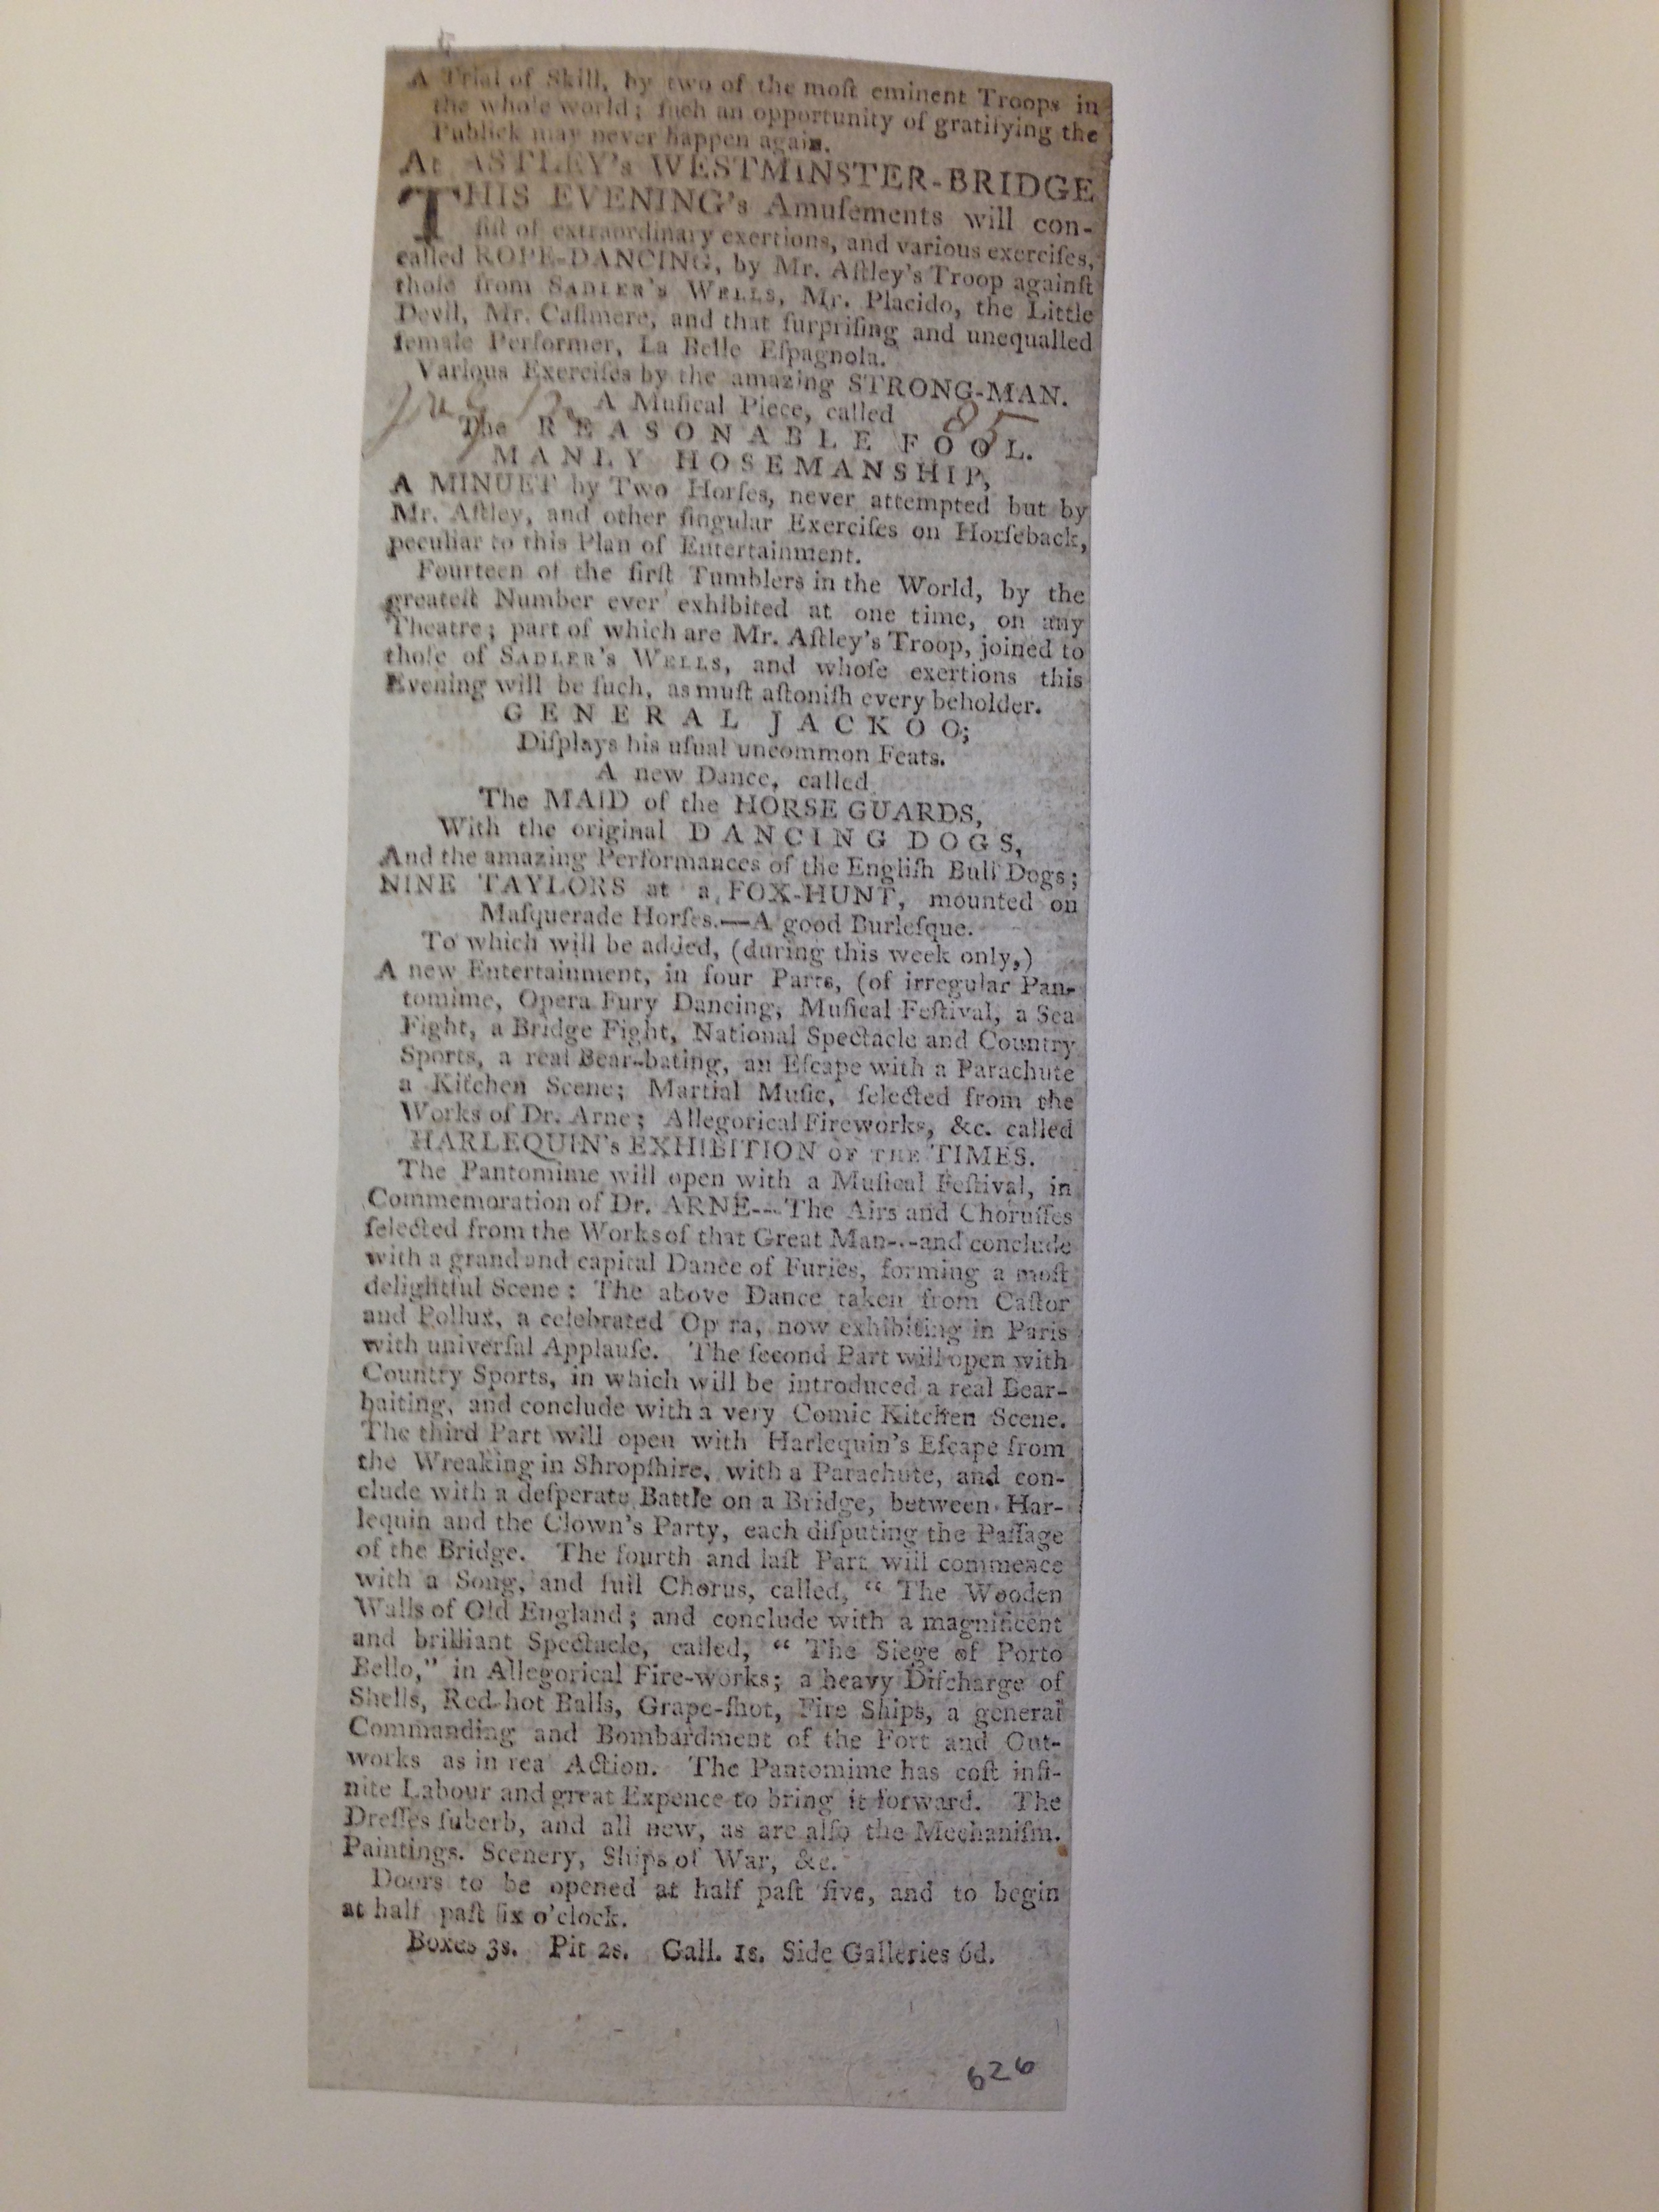 A Trial of Skill, by two of the moſt eminent Troops in
the whole world; ſuch an opportunity of gratifying the
Publick may never happen again.
At ASTLEY's WESTMINSTER-BRIDGE
THIS EVENING's Amuſements will con-
ſiſt of extraordinary exertions, and various exerciſes,
called ROPE-DANCING, by Mr. Aſtley's Troop againſt
thoſe from SADLER's WELLS, Mr. Placido, the Little
Devil, Mr. Caſimere, and that ſurpriſing and unequalled
female Performer, La Belle Eſpagnola.
Various Exerciſes by the amazing STRONG-MAN.
A Muſical Piece, called
85
The REASONABLE FOOL.
MANLY HOSEMANSHIP,
A MINUET by Two Horſes, never attempted but by
Mr. Aſtley, and other ſingular Exerciſes on Horſeback,
peculiar to this Plan of Entertainment.
Fourteen of the firſt Tumblers in the World, by the
greateſt Number ever exhibited at one time, on any
Theatre; part of which are Mr. Aſtley's Troop, joined to
thoſe of SADLER's WELLS, and whoſe exertions this
Evening will be ſuch, as muſt aſtoniſh every beholder.
GENERAL JACKOO;
Diſplays his uſual uncommon Feats.
A new Dance, called
The MAID of the HORSE GUARDS,
With the original DANCING DOGS,
And the amazing Performances of the Engliſh Bull Dogs;
NINE TAYLORS at a FOX-HUNT, mounted on
Maſquerade Horſes.—A good Burleſque.
To which will be added, (during this week only,)
A new Entertainment, in four Parts, (of irregular Pan-
tomime, Opera Fury Dancing, Muſical Feſtival, a Sea
Fight, a Bridge Fight, National Spectacle and Country
Sports, a real Bear-bating, an Eſcape with a Parachute
a Kitchen Scene; Martial Muſic, ſelected from the
Works of Dr. Arne; Allegorical Fireworks, &c. called
HARLEQUIN's EXHIBITION OF THE TIMES.
The Pantomime will open with a Muſical Feſtival, in
Commemoration of Dr. ARNE--- The Airs and Choruſſes
ſelected from the Works of that Great Man---and conclude
with a grand and capital Dance of Furies, forming a moſt
delightful Scene: The above Dance taken from Caſtor
and Pollux, a celebrated Op ra, now exhibiting in Paris
with univerſal Applauſe. The ſecond Part will open with
Country Sports, in which will be introduced a real Bear-
baiting, and conclude with a very Comic Kitchen Scene.
The third Part will open with Harlequin's Eſcape from
the Wreaking in Shropſhire, with a Parachute, and con-
clude with a deſperate Battle on a Bridge, between Har-
lequin and the Clown's Party, each diſputing the Paſſage
of the Bridge. The fourth and laſt Part will commence
with a Song, and full Chorus, called, “ The Wooden
Walls of Old England; and conclude with a magnificent
and brilliant Spectacle, called, “ The Siege of Porto
Bello,” in Allegorical Fire-works; a heavy Diſcharge of
Shells, Red-hot Balls, Grape-ſhot, Fire Ships, a general
Commanding and Bombardment of the Fort and Out-
works as in rea Action. The Pantomime has coſt infi-
nite Labour and great Expence to bring it forward. The
Dreſſes ſuberb, and all new, as are alſo the Mechaniſm.
Paintings. Scenery, Ships of War, &c.
Doors to be opened at half paſt five, and to begin
at half paſt ſix o'clock.
Boxes 3s. Pit 2s. Gall. 1s. Side Galleries 6d.
626